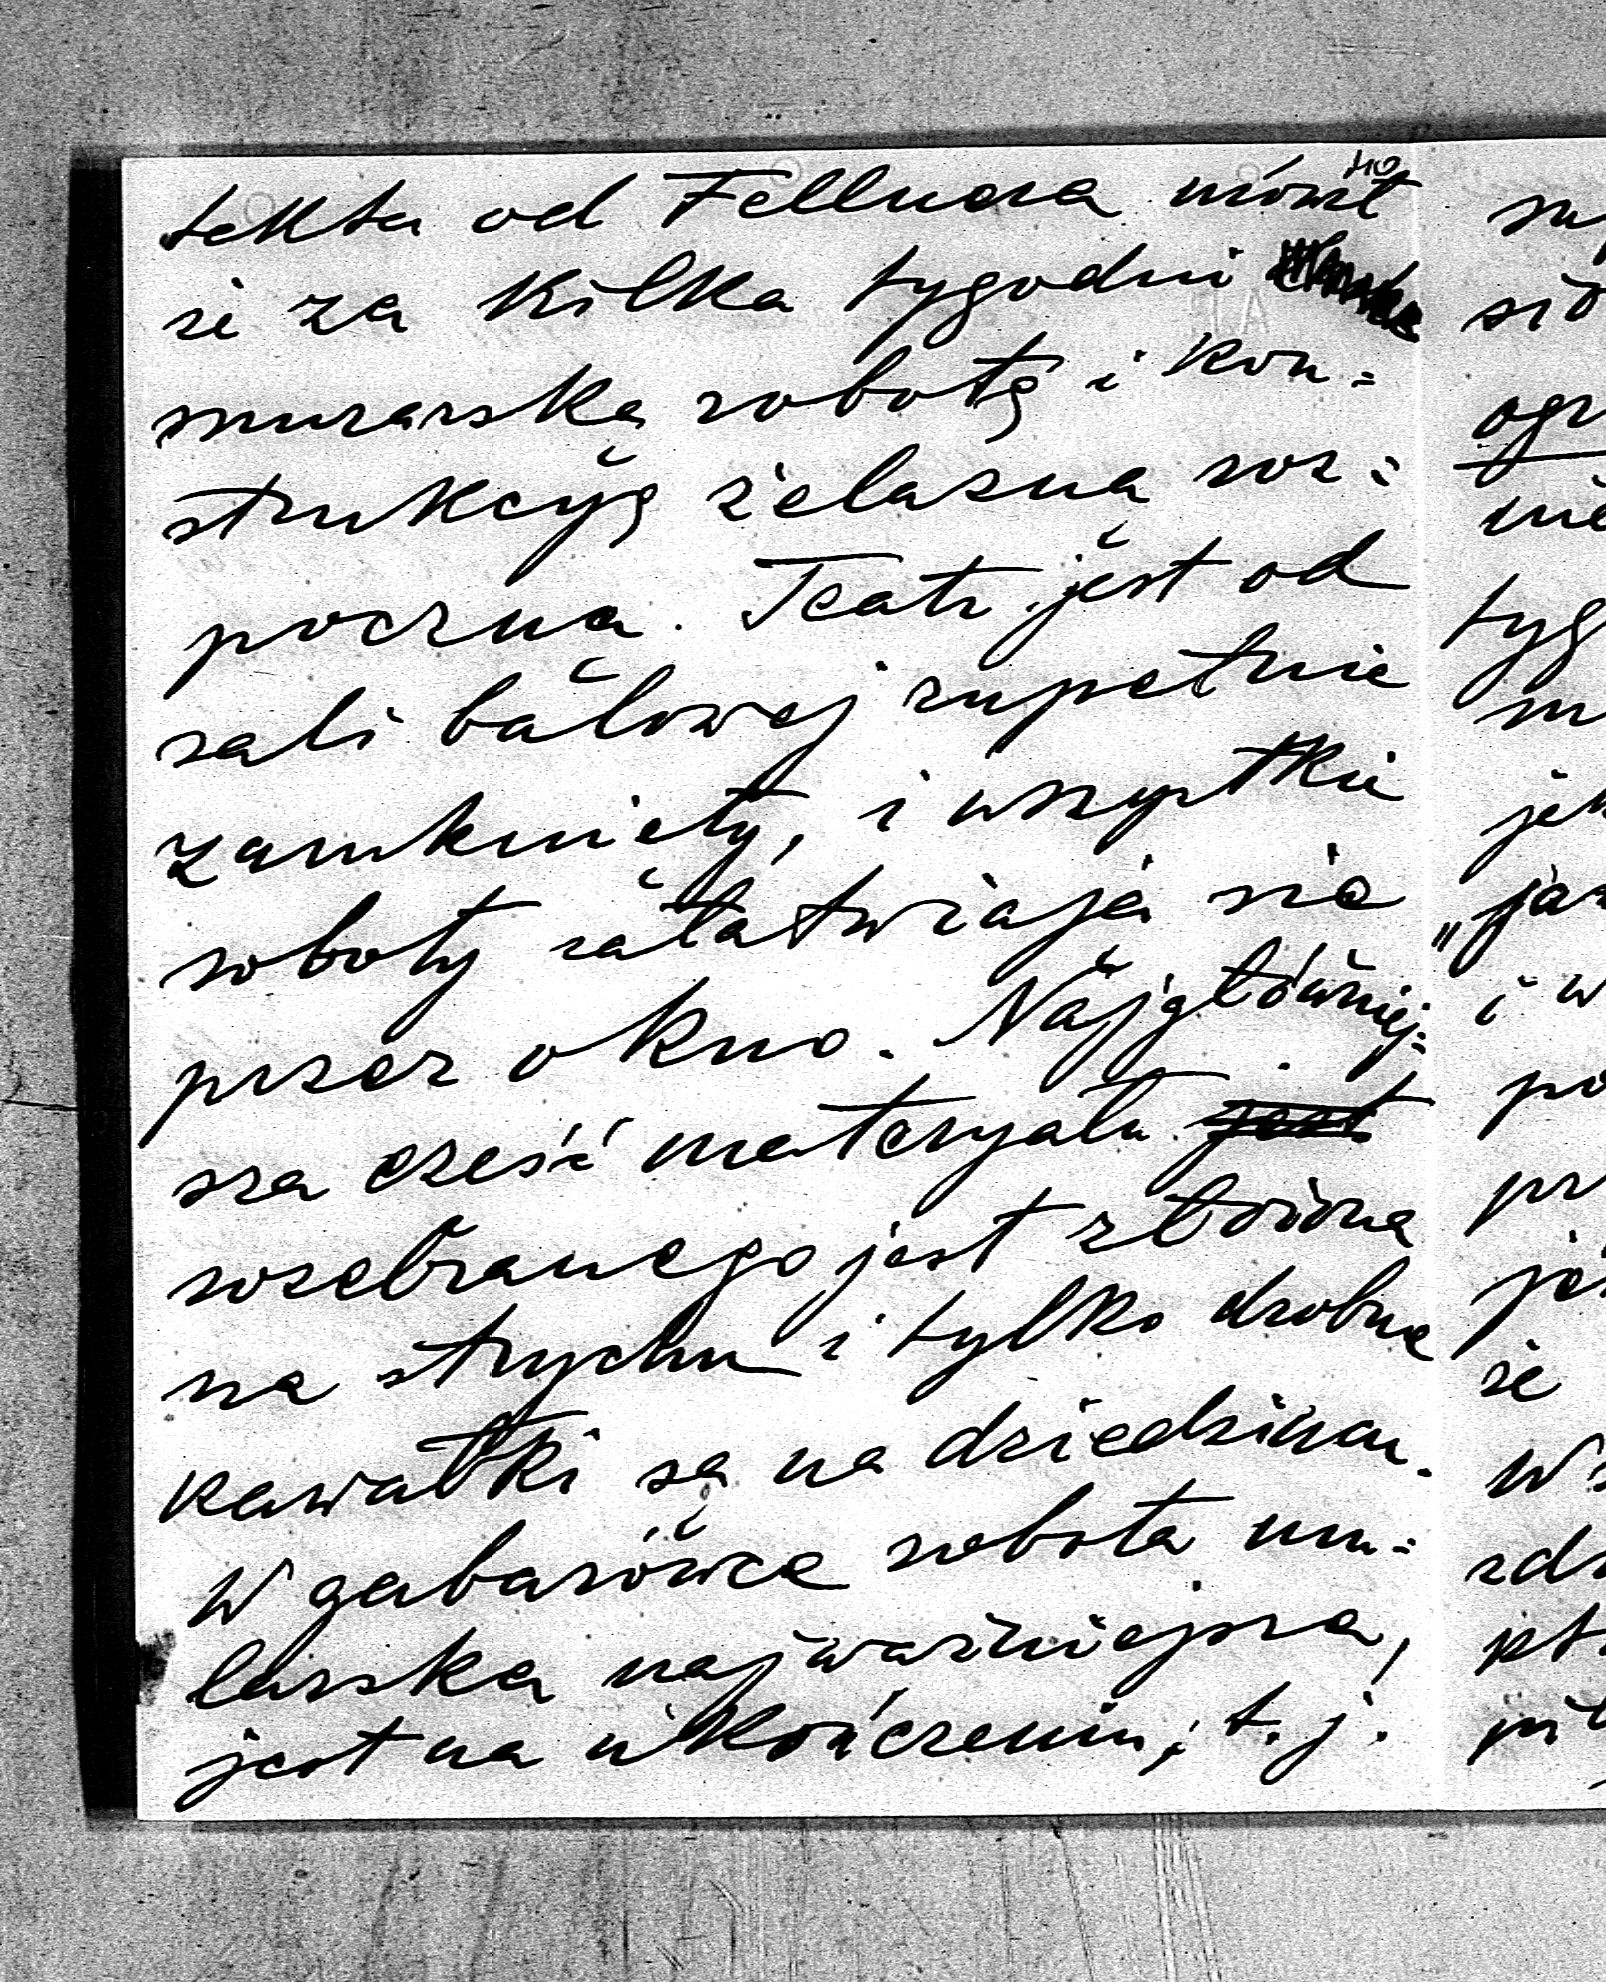 tekta od Fellnera mówił
że za kilka tygodni
murarską robotę i kon=
strukcyę żelazną roz=
poczną. Teatr jest od
sali balowej zupełnie
zamknięty, i wszystkie
roboty załatwiają się
przez okno. Najgłówniej=
sza cześć materyału jest
rozebranego jest złożona
na strychu i tylko drobne
kawałki są na dziedzincu.
W gabarówce robota mu=
larska najważniejsza,
jest na ukończeniu, t. j.